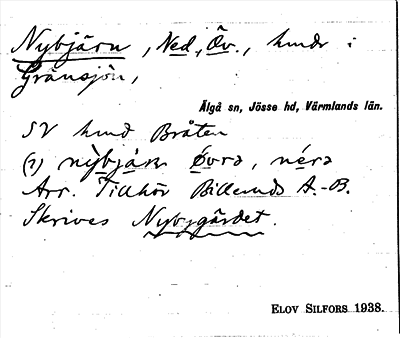 Nybjärn, Ned., Öv., hmdr i
Gränsjön,
Älgå sn, Jösse hd, Värmlands län.
SV hmd Bråten
(1) nybjá͡rn övra, néra
Arr. Tillhör Billeruds A.-B.
Skrives Nybygärdet.
ELOV SILFORS 1938.